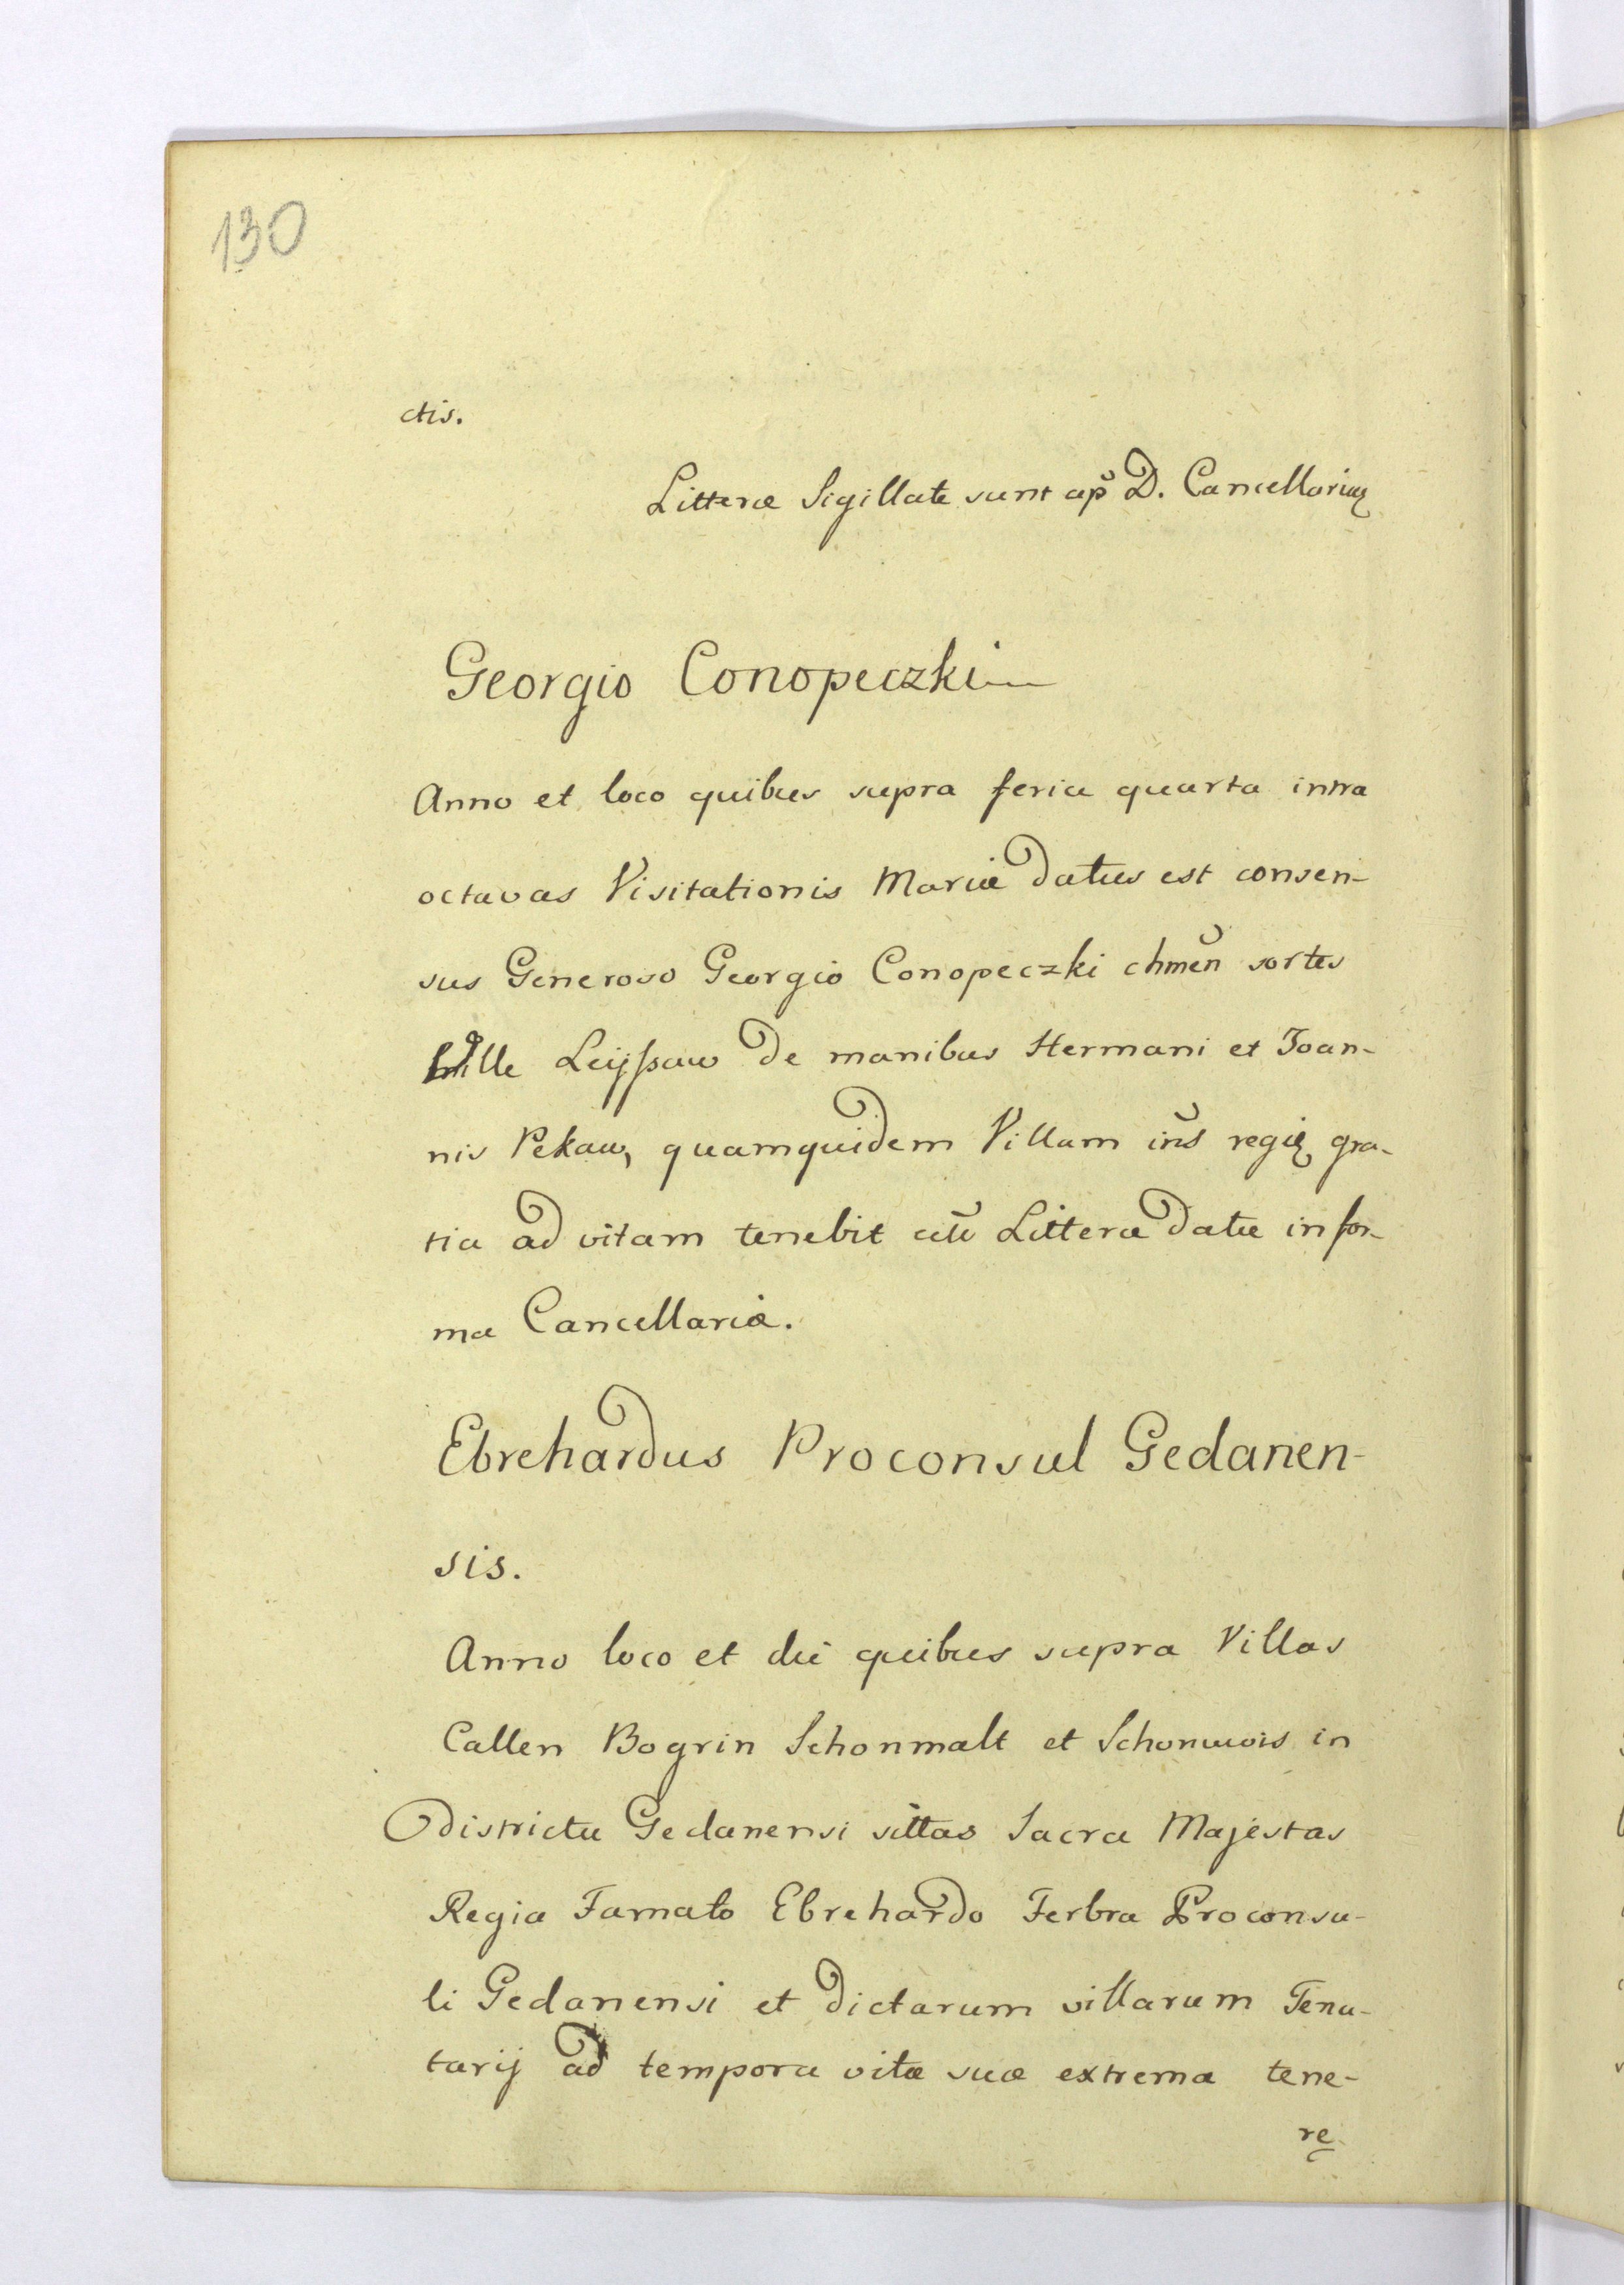 130
ctis.
Litteræ Sigillate sunt ap̃ D. Cancellariuɱ
Georgio Conopeczki
Anno et loco quibus supra feria quarta intra
octavas Visitationis Mariæ datus est consen-
sus Generoso Georgio Conopeczki chmen̄ sortes
Ville Leyssaw de manibus Hermani et Joan-
nis Pekaw, quamquidem Villam regię gra-
tia ad vitam tenebit Litteræ datæ in for-
ma Cancellariæ.
Ebrehardus Proconsul Gedanen-
sis.
Anno loco et die quibus supra Villas
Callen Bogrin Schonmalt et Schonwois in
districtu Gedanensi sittas Sacra Majestas
Regia Famato Ebrehardo Ferbra Proconsu-
li Gedanensi et dictarum villarum Tenu-
tarij ad tempora vitæ suæ extrema tene-
re